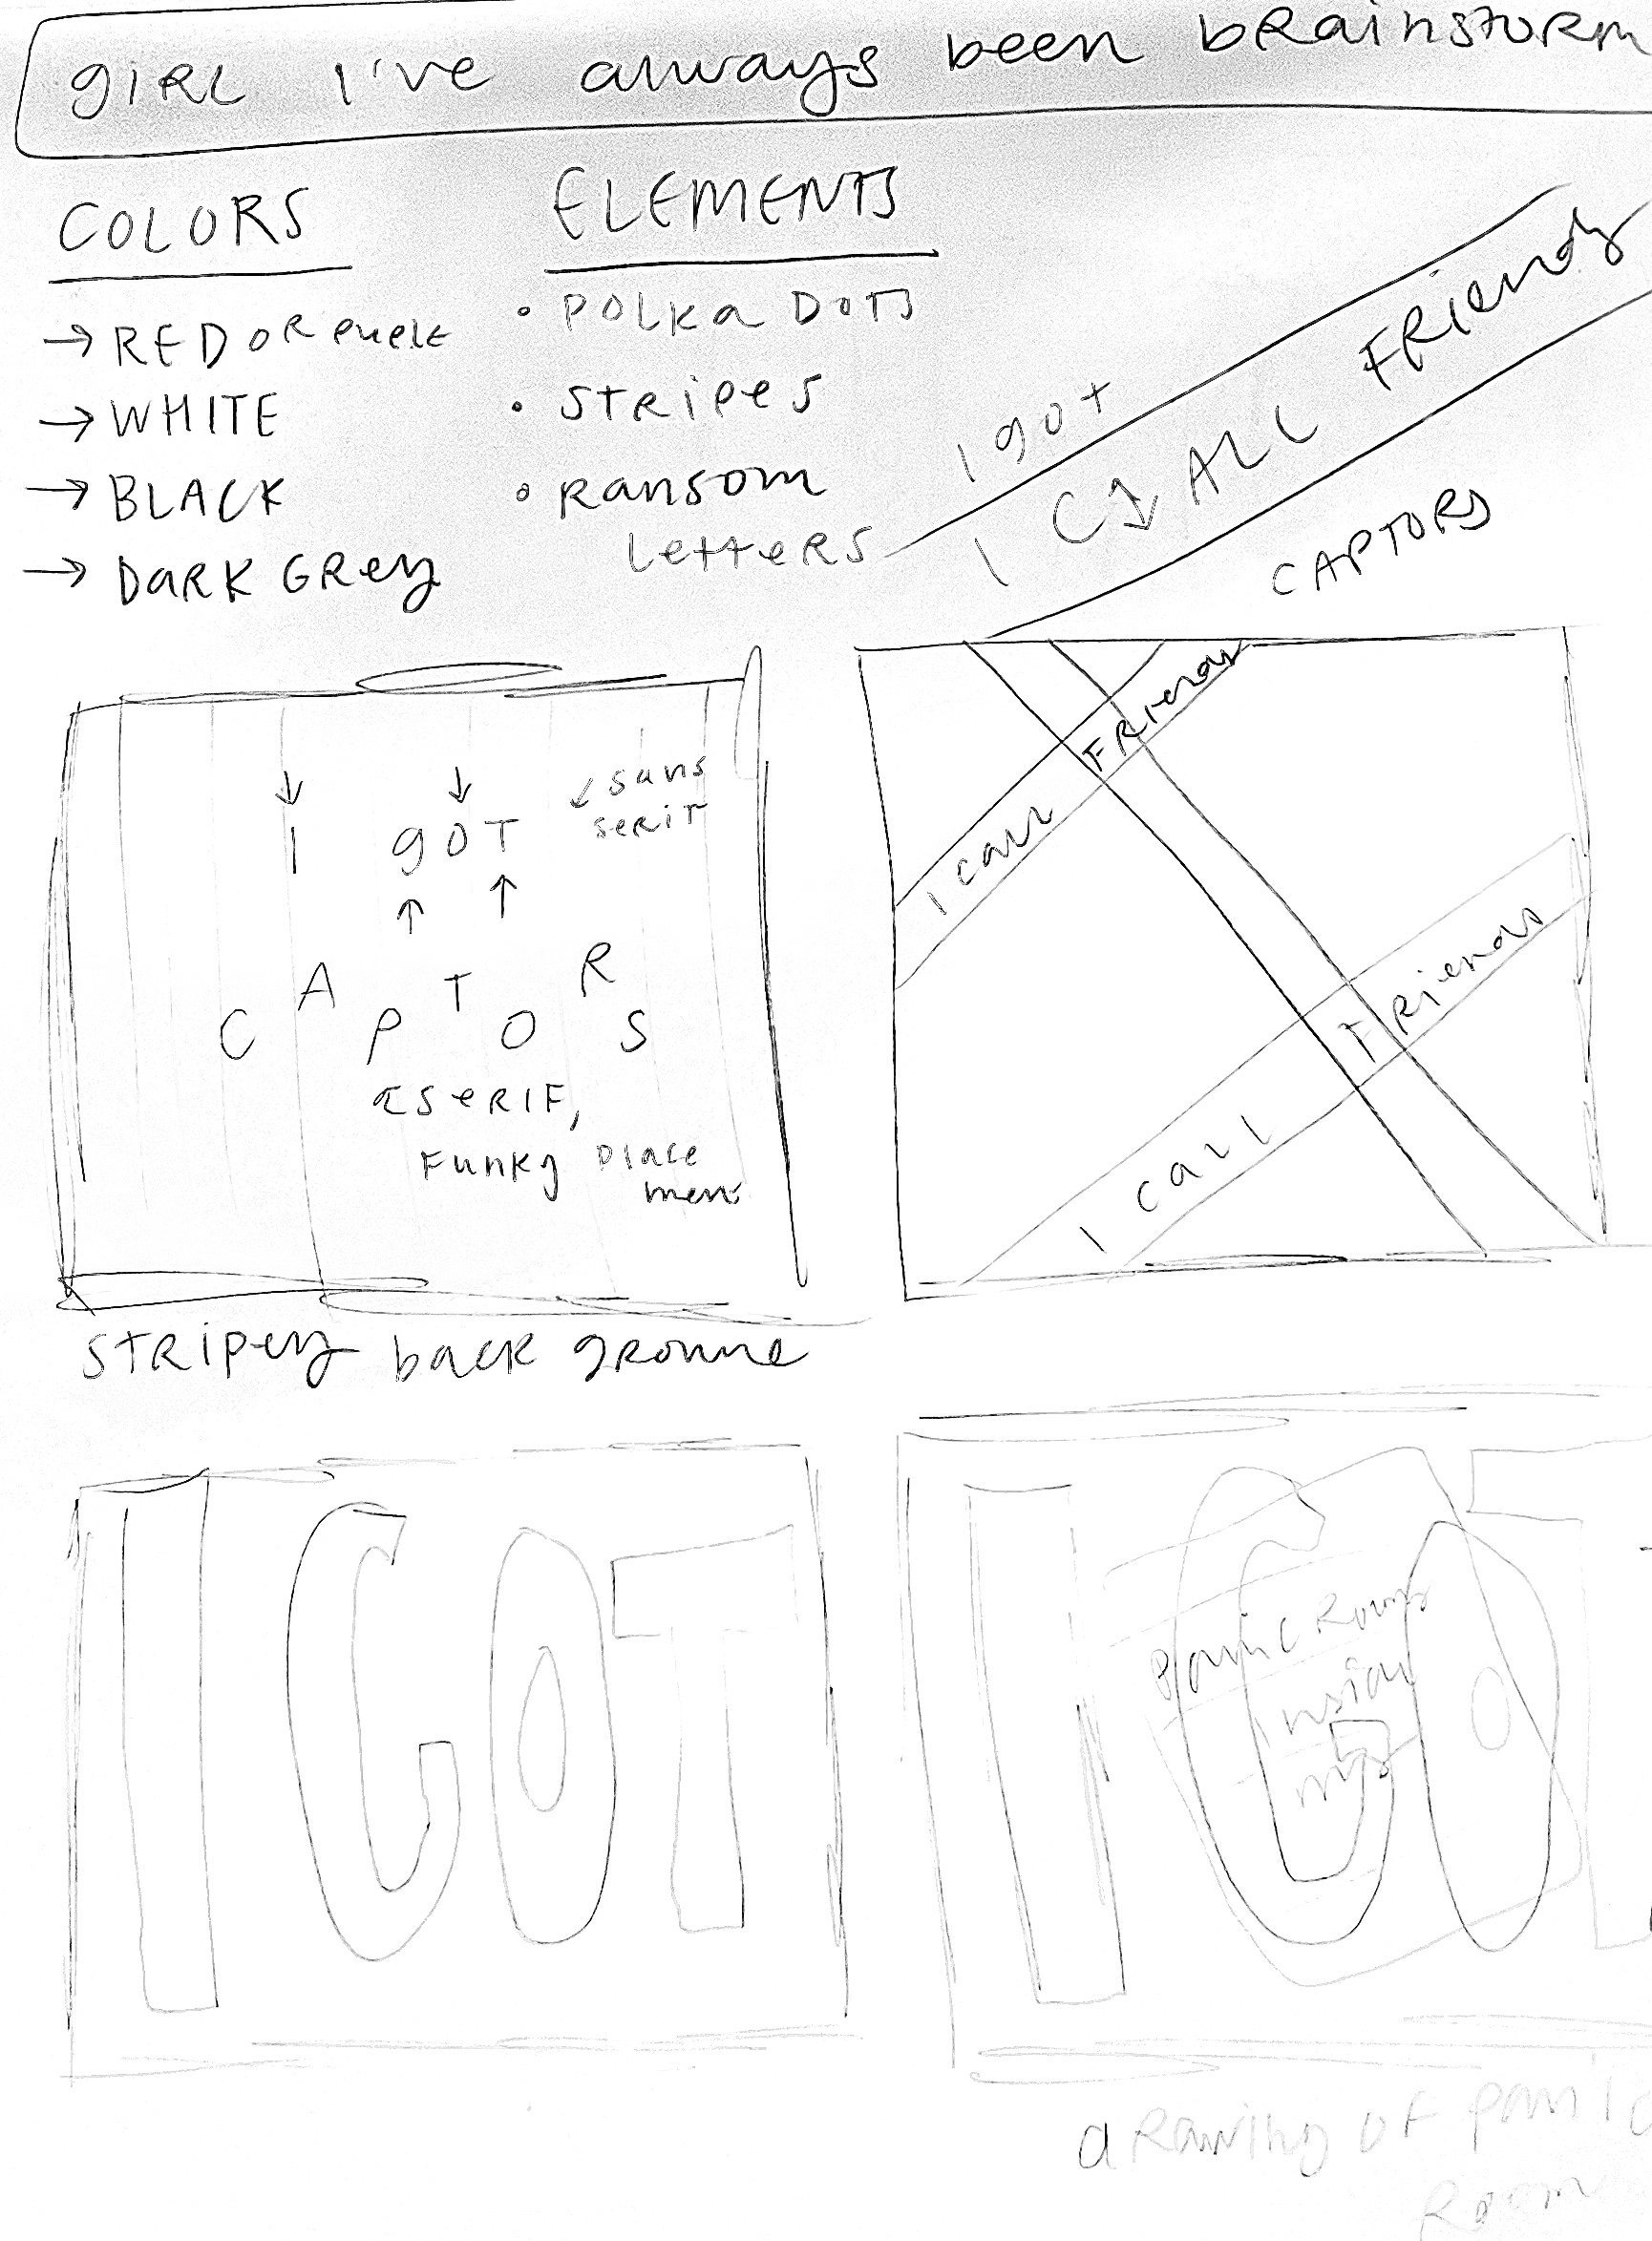 girl I've always been brainstorm
COLORS
→ RED OR PURPLE
→ WHITE
→ BLACK
→ DARK GREY
ELEMENTS
• POLKA DOTS
• STRIPES
• RANSOM
LETTERS
I got
I CALL FRIENDS
CAPTORS
I GOT
sans
serif
CAPTORS
SERIF,
FUNKY place
ment
I call Friends
I call Friends
STRIPEY back ground
I GOT
I GOT
Panic Rooms
inside
my
drawing of panic
Room